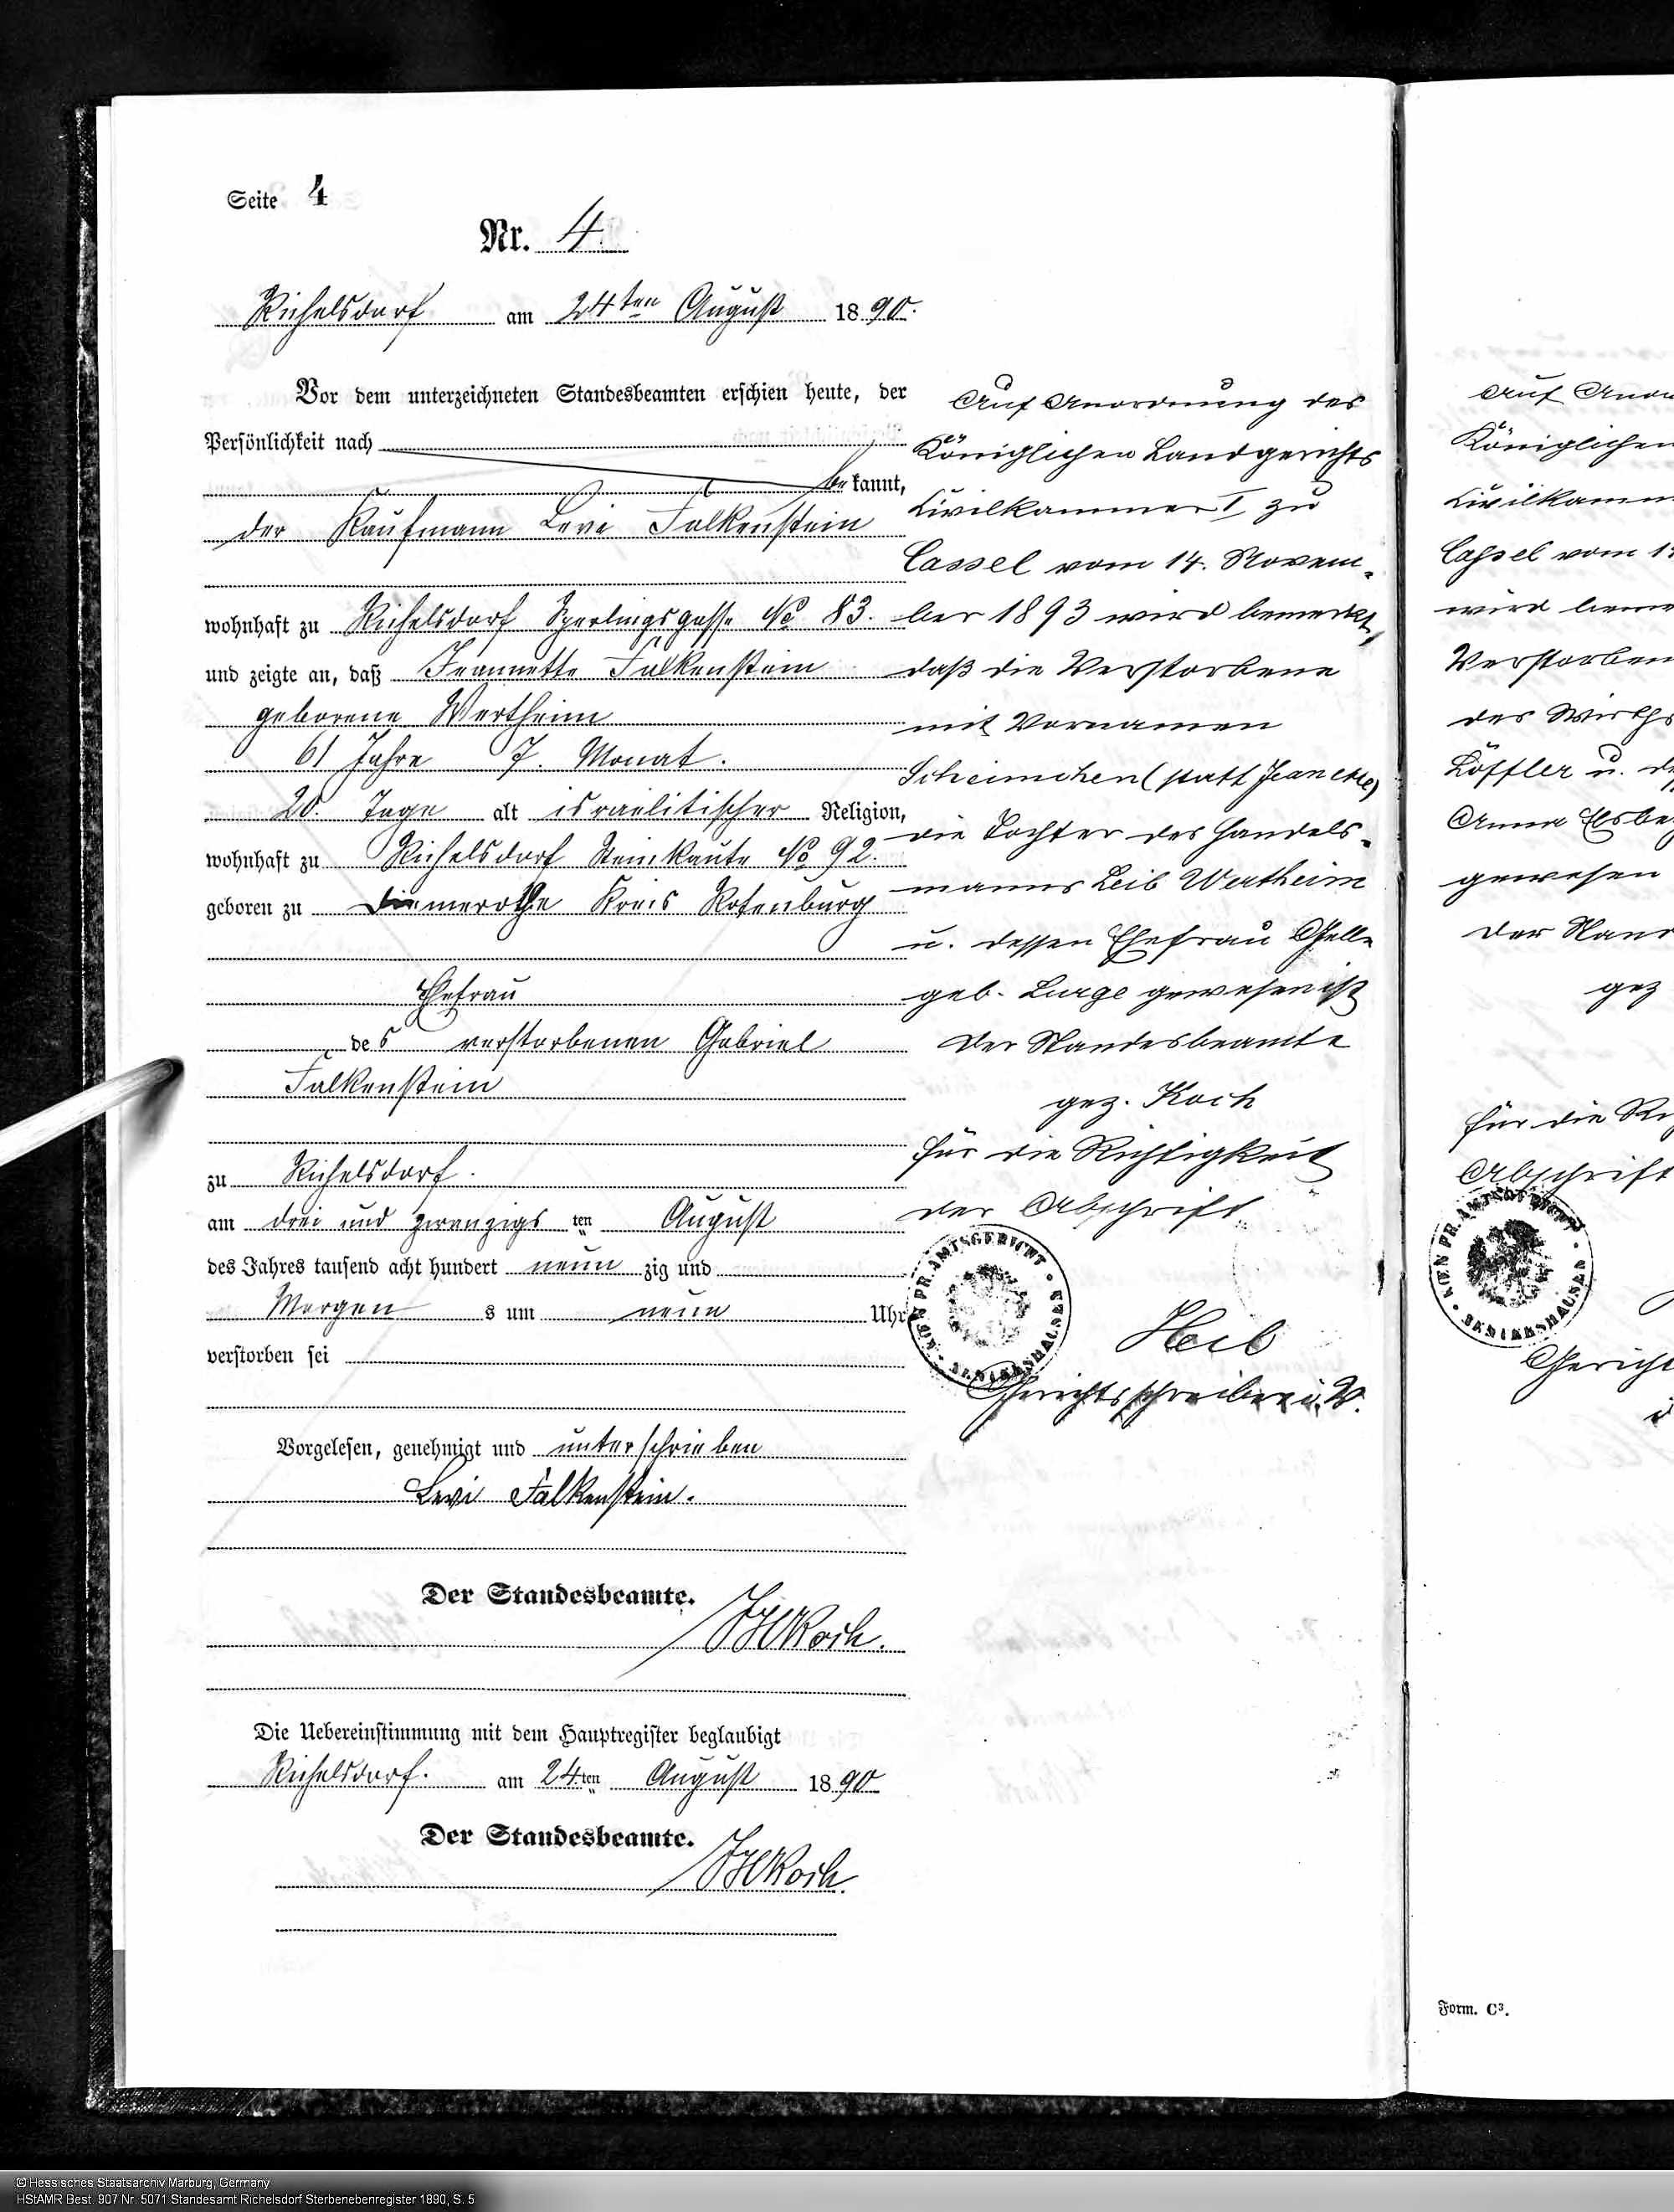 Seite 4
Nr. 4.
Richelsdorf am 24ten August 1890.
Vor dem unterzeichneten Standesbeamten erschien heute, der
Persönlichkeit nach
bekannt,
der Kaufmann Levi Falkenstein
wohnhaft zu Richelsdorf Sperlingsgasse No 83.
und zeigte an, daß Jeannette Falkenstein
geborene Wertheim
61 Jahre 7. Monat.
20. Tage alt israelitischer Religion,
wohnhaft zu Richelsdorf Steinkaute No 92.
geboren zu Diemerothe Kreis Rotenburg
Ehefrau
des verstorbenen Gabriel
Falkenstein
zu Richelsdorf.
am drei und zwanzigsten August
des Jahres tausend acht hundert neunzig und
Morgens um neun Uhr
verstorben sei
Vorgelesen, genehmigt und unterschrieben
Levi Falkenstein.
Der Standesbeamte.
Koch.
Die Uebereinstimmung mit dem Hauptregister beglaubigt
Richelsdorf. am 24ten August 1890
Der Standesbeamte.
Koch.
Auf Anordnung des
Königlichen Landgerichts
Civilkammer I zu
Cassel vom 14. Novem-
ber 1893 wird bemerkt,
daß die Verstorbene
mit Vornamen
Scheimchen (statt Jeanette)
die Tochter des Handels-
manns Leib Wertheim
u. dessen Ehefrau Gelle
geb. Lurge gewesen ist
Der Standesbeamte
gez. Koch
Für die Richtigkeit
der Abschrift
Heib
Gerichtsschreiber i. V.
KGN PR. AMTSGERICHT
Auf
Königlichen
Civilkamm
Cassel vom 1
wird beme
Verstorben
des Wirths
Löffler u. d
Anna Elsbe
gewesen
Der Stand
gez
Für die Ri
Abschrift
KGN PR. AMTSGERICHT
Gericht
Form. C³.
© Hessisches Staatsarchiv Marburg, Germany
HStAMR Best. 907 Nr. 5071 Standesamt Richelsdorf Sterbenebenregister 1890, S. 5